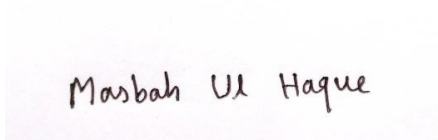 Masbah Ul Haque